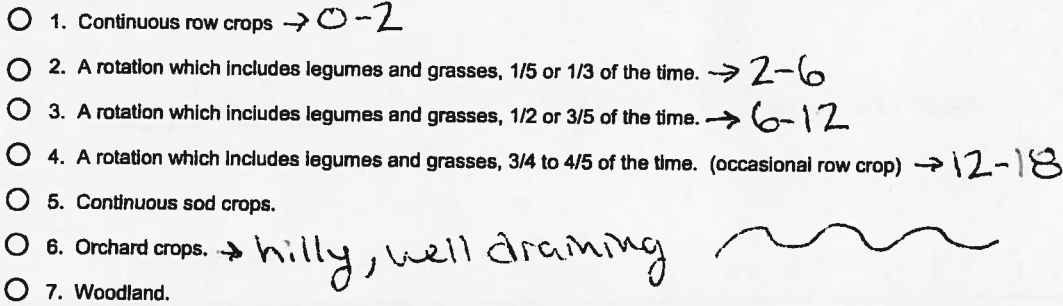 1. Continuous row crops → 0-2
2. A rotation which includes legumes and grasses, 1/5 or 1/3 of the time. → 2-6
3. A rotation which includes legumes and grasses, 1/2 or 3/5 of the time. → 6-12
4. A rotation which includes legumes and grasses, 3/4 to 4/5 of the time. (occasional row crop) → 12-18
5. Continuous sod crops.
6. Orchard crops. → hilly, well draining
7. Woodland.